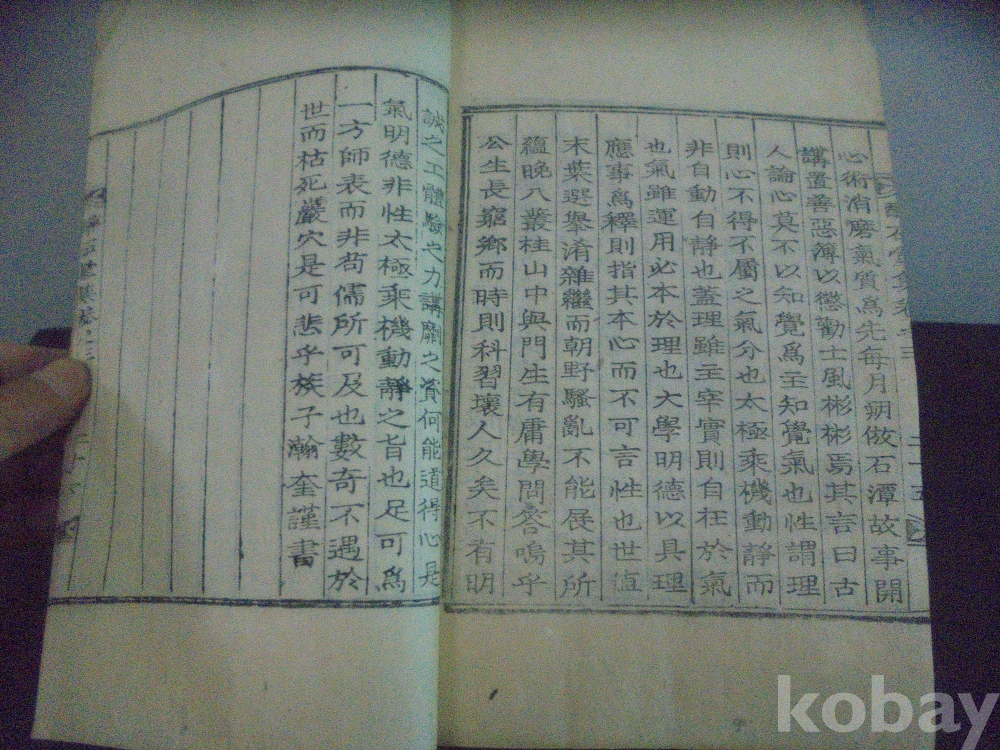 心術消磨氣質爲先每月朔倣石潭故事開
講置善惡薄以懲勸士風彬彬焉其言曰古
人論心莫不以知覺爲主知覺氣也性謂理
則心不得不屬之氣分也太極乘機動靜而
非自動自靜也蓋理雖主宰實則自在於氣
也氣雖運用必本於理也大學明德以具理
應事爲釋則指其本心而不可言性也世値
末葉選擧淆雜繼而朝野騷亂不能展其所
蘊晩八叢桂山中與門生有庸學問答嗚乎
公生長窮鄕而時則科習壞人久矣不有明
誠之工體驗之力講劘之資何能道得心是
氣明德非性太極乘機動靜之旨也足可爲
一方師表而非苟儒所可及也數奇不遇於
世而枯死嚴穴是可悲乎族子瀚奎謹書
kobay